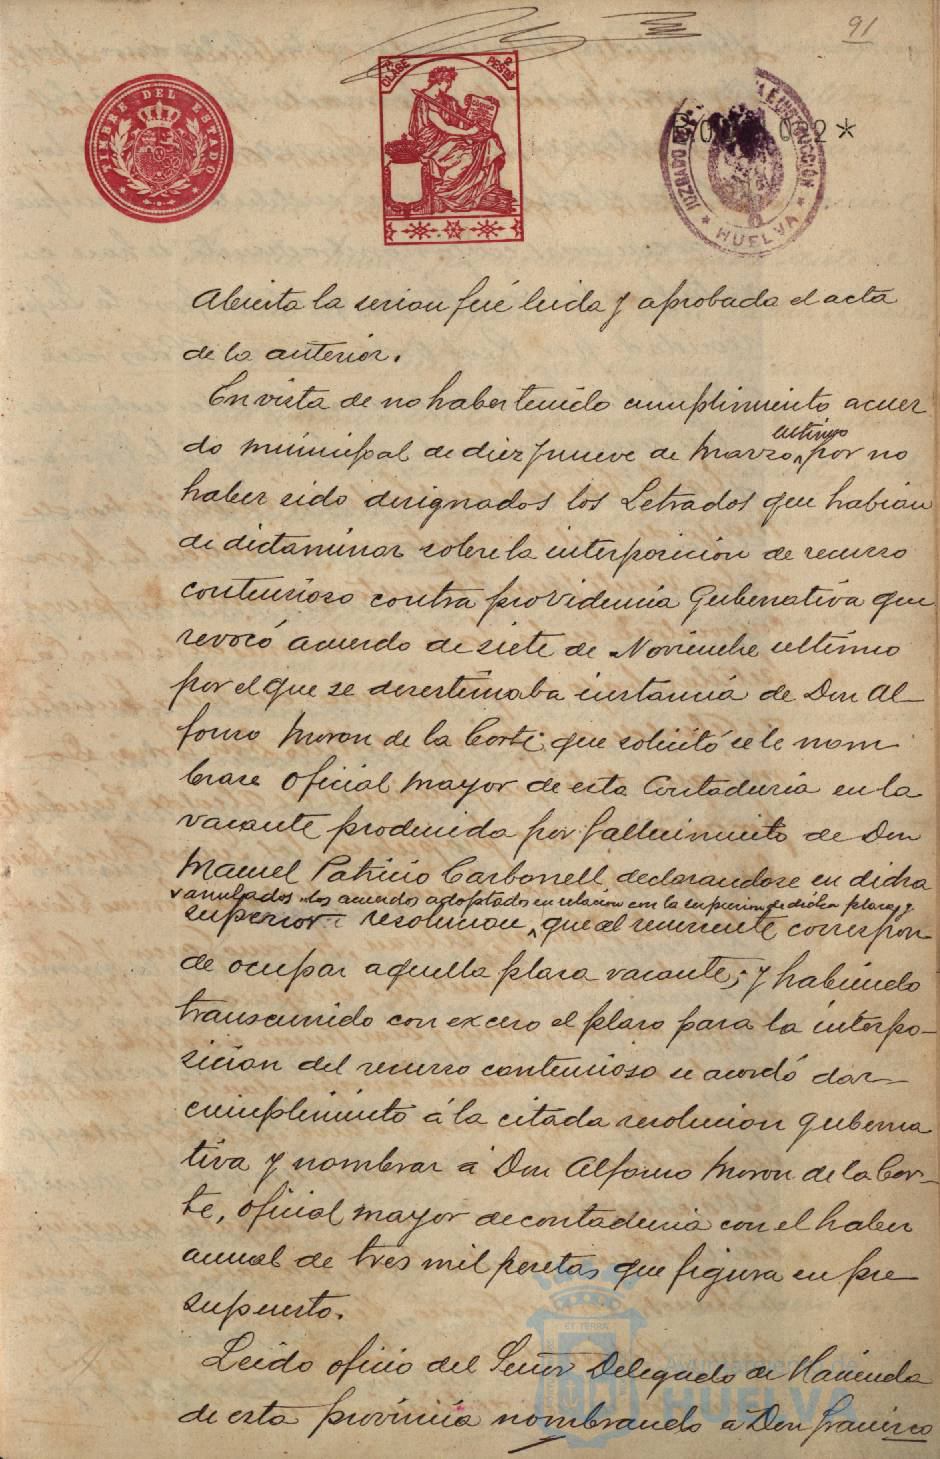 91
TIMBRE DEL ESTADO
CLASE
PESETAS
JUZGADO DE INSTRUCCIÓN
HUELVA
Abierta la sesion fué leida y aprobada el acta
de la anterior.
En vista de no haber tenido cumplimiento acuer
ultimo
do municipal de diez y nueve de Marzo, por no
haber sido designados los Letrados que habian
de dictaminar sobre la interposicion de recurso
contencioso contra providencia Gubernativa que
revocó acuerdo de siete de Noviembre ultimo
por el que se desestimaba instancia de Don Al-
fonso Moron de la Corte, que solicitó se le nom
brase oficial mayor de esta Contaduria en la
vacante producida por fallecimiento de Don
Manuel Patricio Carbonell declarandose en dicha
anulados los acuerdos adoptados en relacion con la supresion de dicha plaza, y
superior resolucion, que al recurrente correspon
de ocupar aquella plaza vacante; y habiendo
transcurrido con exceso el plazo para la interpo-
sicion del recurso contencioso se acordó dar
cumplimiento á la citada resolucion guberna
tiva y nombrar á Don Alfonso Moron de la Cor-
te, oficial mayor de contaduria con el haber
anual de tres mil pesetas que figura en pre
supuesto.
Leido oficio del Señor Delegado de Hacienda
de esta provincia nombrando á Don Francisco
HUELVA